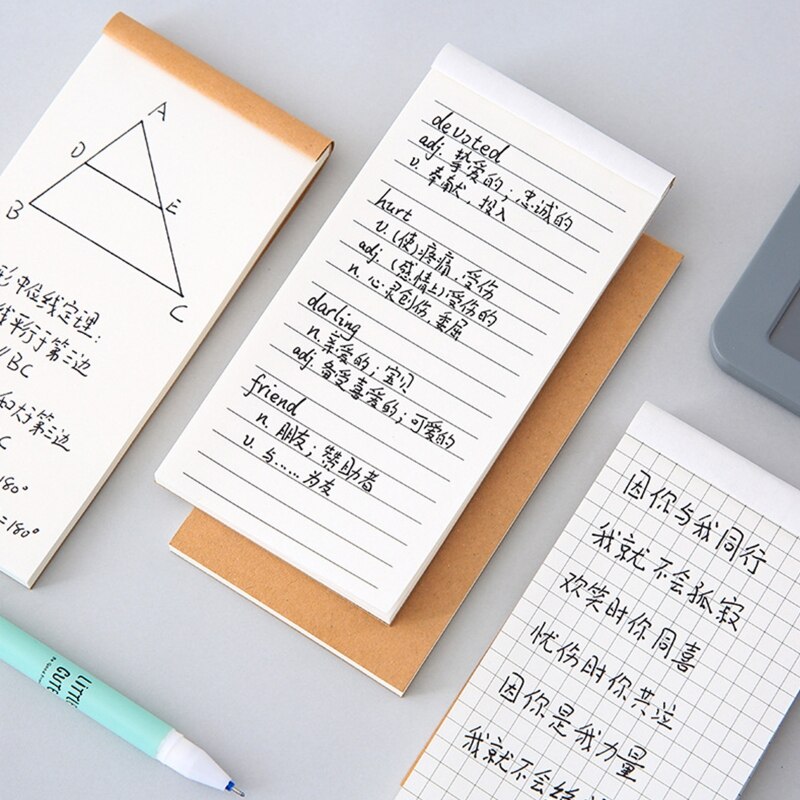 A
D
E
B
C
形中位线定理:
线平行于第三边
//BC
和大于第三边
C
180°
=180°
devoted
adj. 挚爱的；忠诚的
v. 奉献，投入
hurt
v.(使)疼痛，受伤
adj.(感情上)受伤的
n. 心灵创伤，委屈
darling
n. 亲爱的；宝贝
adj. 备受喜爱的；可爱的
friend
n. 朋友；赞助者
v. 与……为友
因你与我同行
我就不会孤寂
欢笑时你同喜
忧伤时你共泣
因你是我力量
我就不会
LITTLE
CUTE